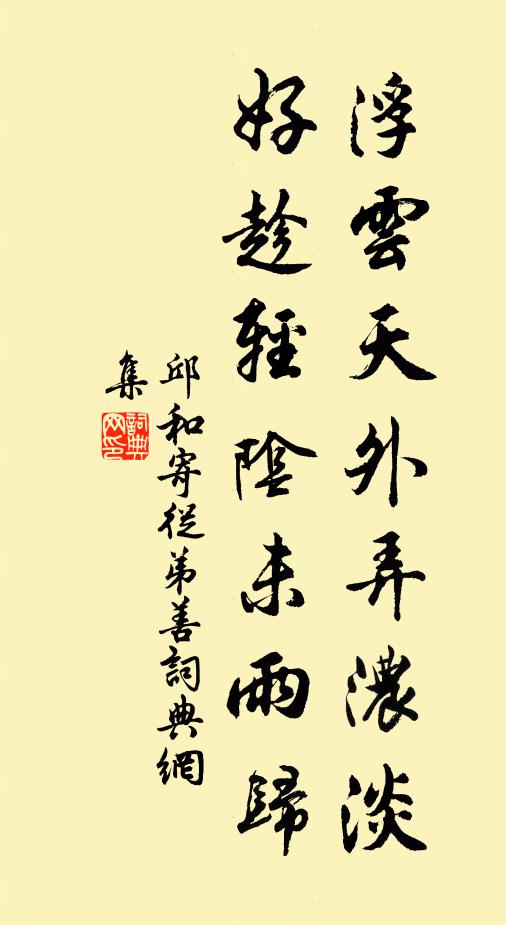 浮雲天外弄濃淡
好趁輕陰未雨歸
邱和寄從弟善詞典網
集
詞典
网印